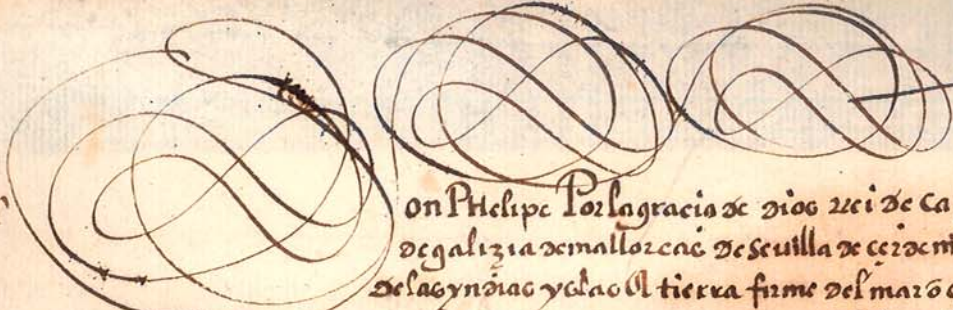 on PHelipe Por la gracia de dios rei de Ca
de galizia de mallorcas de sevilla de çerdeñ
de las yndias yslas & tierra firme del mar o